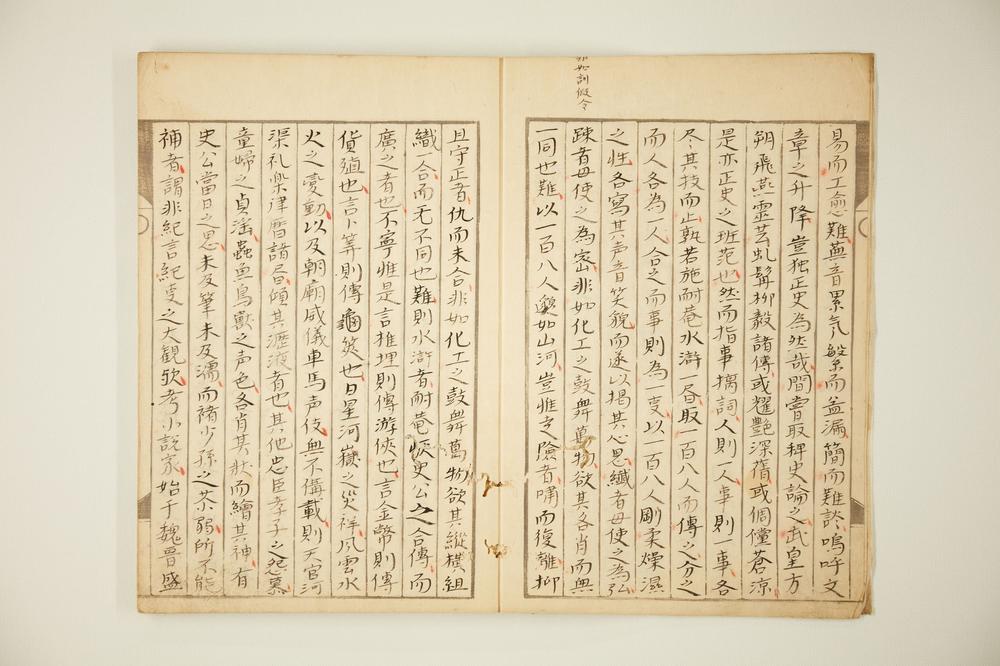 如訓假令
易而工愈難蕪音累气繁而益漏簡而難談嗚呼文
章之升降豈独正史為然哉間嘗取稗史論之武皇方
朔飛燕靈芸虬髯柳毅諸傳或耀艷深蓓或倜儻蒼涼
是亦正史之班范也然而指事摛詞人則一人事則一事各
尽其技而止孰若施耐菴水滸一書取一百八人而傳之分之
而人各為一人合之而事則為一叓以一百八人剛柔燥濕
之性各寫其声音笑貌而遂以揭其心思纖者毋使之為弘
疎者毋使之為密非如化工之鼓舞萬物欲其各肖而無
一同也難以一百八人邈如山河豈惟走險者嘯而復離抑
且守正者仇而未合非如化工之鼓舞萬物欲其縱横組
織一合而无不同也難則水滸者耐菴悵史公之合傳而
廣之者也不寧惟是言椎埋則傳游俠也言金幣則傳
貨殖也言卜筭則傳龜筴也日星河嶽之災祥風雲水
火之变動以及朝廟威儀車馬声伎無不備載則天官河
渠礼楽律曆諸書傾其瀝液者也其他忠臣孝子之怨慕
童婦之貞滛蟲魚鳥獸之声色各肖其狀而繪其神有
史公當日之思未及筆未及濡而褚少孫之苶弱所不能
補者謂非紀言紀叓之大観欤考小説家始于魏晋盛